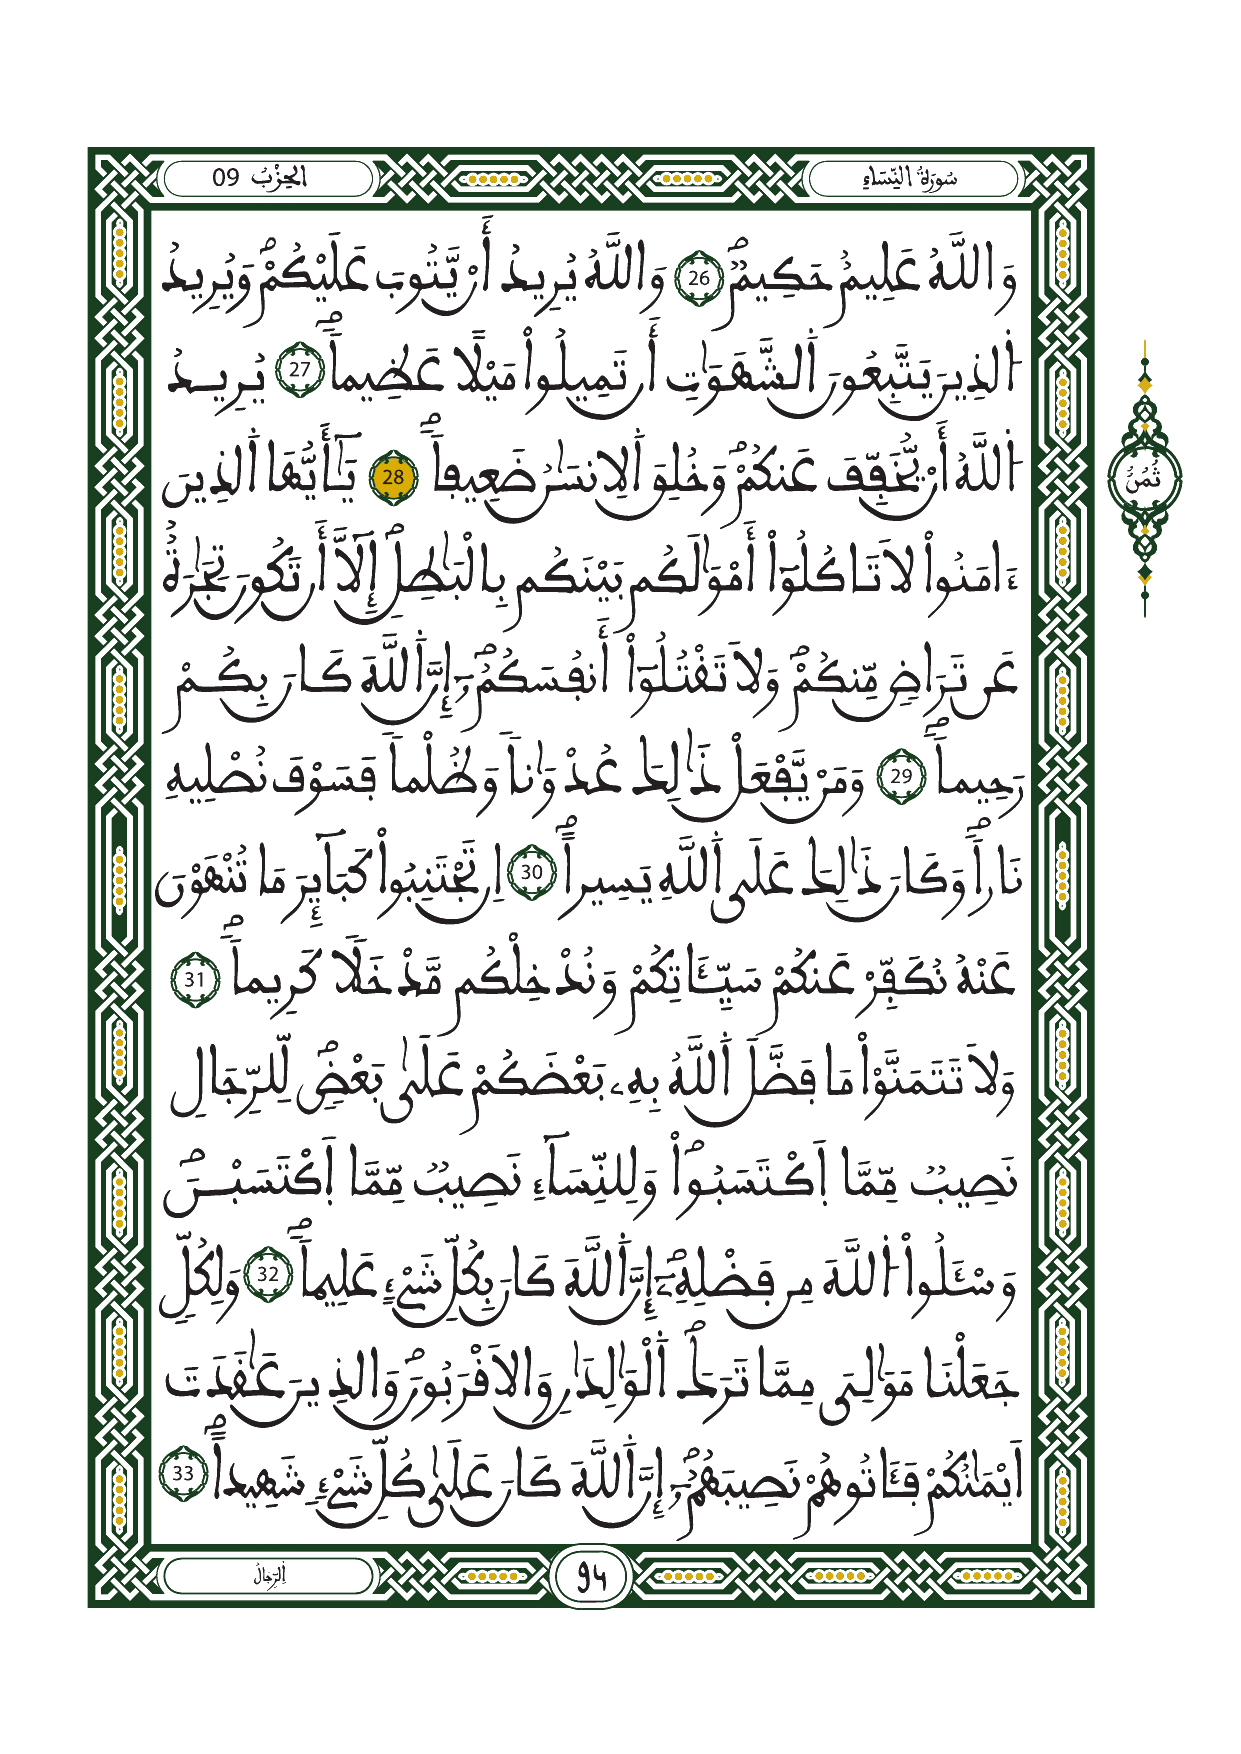 سُورَةُ النِّسَاءِ
الحِزْبُ 09
وَاللَّهُ عَلِيمٌ حَكِيمٌ 26 وَاللَّهُ يُرِيدُ أَنْ يَّتُوبَ عَلَيْكُمْ وَيُرِيدُ
اُلذِينَ يَتَّبِعُونَ اَلشَّهَوَٰتِ أَن تَمِيلُواْ مَيْلًا عَظِيماً 27 يُرِيدُ
اُللَّهُ أَنْ يُّخَفِّفَ عَنكُمْ وَخُلِقَ اَلِانسَٰنُ ضَعِيفاً 28 يَٰٓأَيُّهَا اَلذِينَ
ءَامَنُواْ لَا تَاكُلُوٓاْ أَمْوَٰلَكُم بَيْنَكُم بِالْبَٰطِلِ إِلَّآ أَن تَكُونَ تِجَٰرَةٌ
عَن تَرَاضٍ مِّنكُمْ وَلَا تَقْتُلُوٓاْ أَنفُسَكُمُۥٓ إِنَّ اَللَّهَ كَانَ بِكُمْ
رَحِيماً 29 وَمَنْ يَّفْعَلْ ذَٰلِكَ عُدْوَٰناً وَظُلْماً فَسَوْفَ نُصْلِيهِ
نَاراً وَكَانَ ذَٰلِكَ عَلَى اَللَّهِ يَسِيراً 30 اِن تَجْتَنِبُواْ كَبَآئِرَ مَا تُنْهَوْنَ
عَنْهُ نُكَفِّرْ عَنكُمْ سَيِّـَٔاتِكُمْ وَنُدْخِلْكُم مَّدْخَلًا كَرِيماً 31
وَلَا تَتَمَنَّوْاْ مَا فَضَّلَ اَللَّهُ بِهِۦ بَعْضَكُمْ عَلَىٰ بَعْضٍ لِّلرِّجَالِ
نَصِيبٌ مِّمَّا اَكْتَسَبُواْ وَلِلنِّسَآءِ نَصِيبٌ مِّمَّا اَكْتَسَبْنَ
وَسْـَٔلُواْ اُللَّهَ مِن فَضْلِهِۦٓ إِنَّ اَللَّهَ كَانَ بِكُلِّ شَےْءٍ عَلِيماً 32 وَلِكُلٍّ
جَعَلْنَا مَوَٰلِيَ مِمَّا تَرَكَ اَلْوَٰلِدَٰنِ وَالَاقْرَبُونَ وَالذِينَ عَٰقَدَتَ
اَيْمَٰنُكُمْ فَـَٔاتُوهُمْ نَصِيبَهُمُۥٓ إِنَّ اَللَّهَ كَانَ عَلَىٰ كُلِّ شَےْءٍ شَهِيداً 33
ثُمُنٌ
94
اَلرِّجَالُ